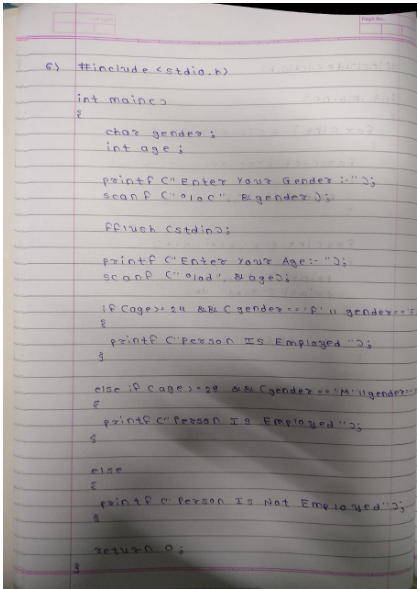 6) #include <stdio.h>
int main()
{
char gender ;
int age ;
printf ("Enter Your Gender :- ");
scanf ("%c", &gender);
fflush (stdin);
printf ("Enter Your Age :- ");
scanf ("%d", &age);
if (age >= 24 && (gender == 'f' || gender ==
{
printf ("Person Is Employed ");
}
else if (age >= 28 && (gender == 'M' || gender ==
{
printf ("Person Is Employed ");
}
else
{
printf (" Person Is Not Employed ");
}
return 0 ;
}